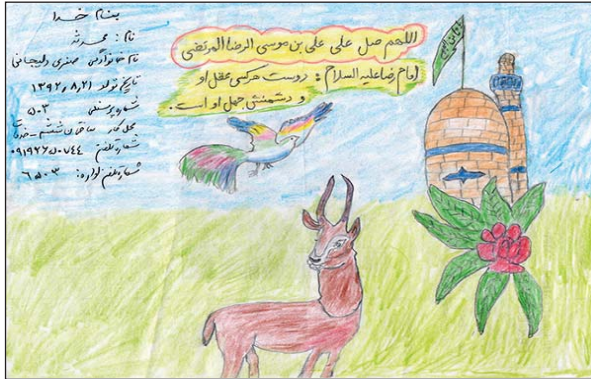 بنام خدا
نام: محمد
نام خانوادگی صفری دلیجانی
تاریخ تولد ۱۳۹۲٫۸٫۲۱
شماره پرسنلی ۵۰۳
محل کار ساختمان ششم - خدمات
شماره تلفن
شماره تلفن اداره: ۶۵۰۳
اللهم صل علی علی بن موسی الرضا المرتضی
امام رضا علیه السلام: دوست هرکسی عقل او
و دشمنش جهل او است.